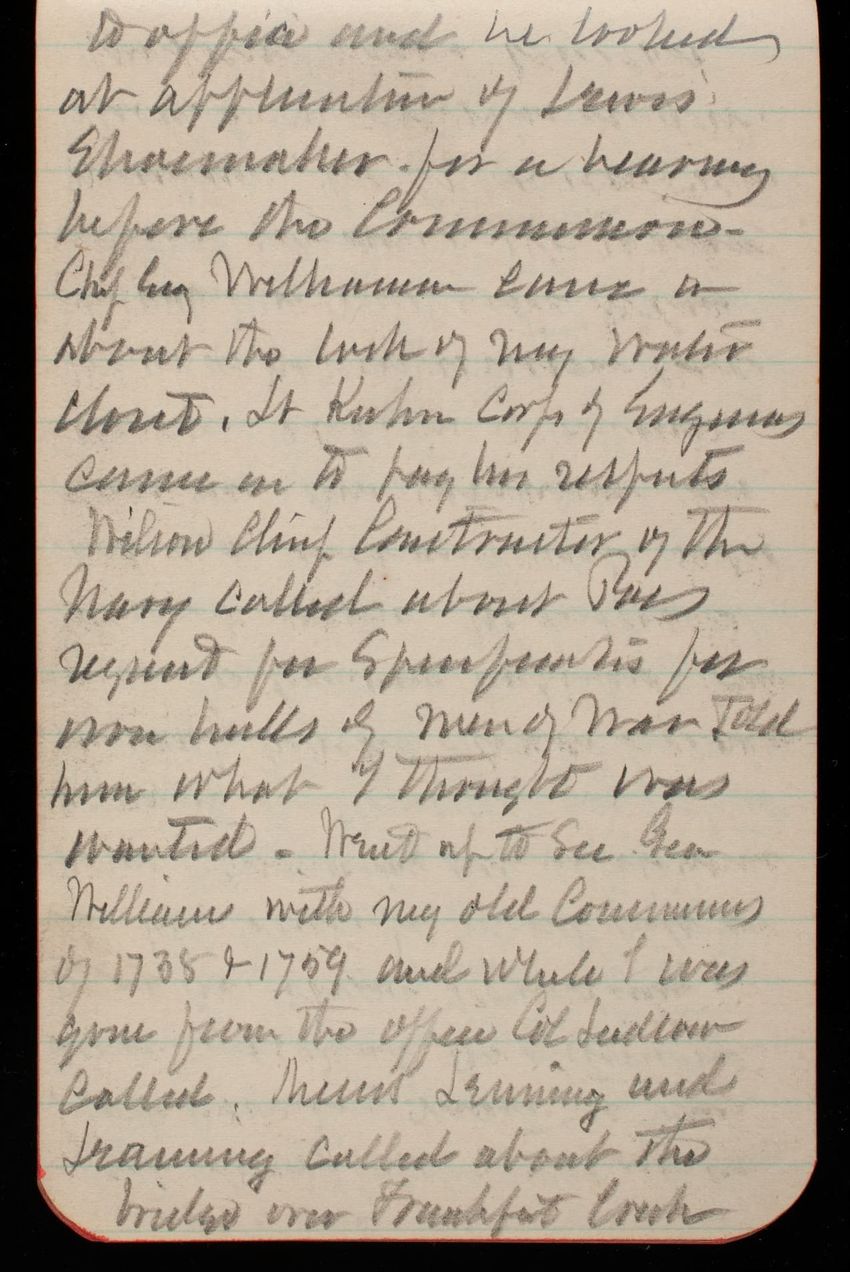 to office and he looked
at application of Lewis
Shoemaker for a hearing
before the Commission -
Chf Eng Williamson came in
about the lock of my water
closet. Lt Kuhn Corps of Engineers
came in to pay his respects
Wilson Chief Constructor of the
Navy called about
request for Specifications for
iron hulls of men of war Told
him what I thought was
wanted - Went up to See Gen
Williams with my old Commissions
of 1738 & 1759 and while I was
gone from the office Col Ludlow
Called. and
called about the
bridge over Frankfort Creek